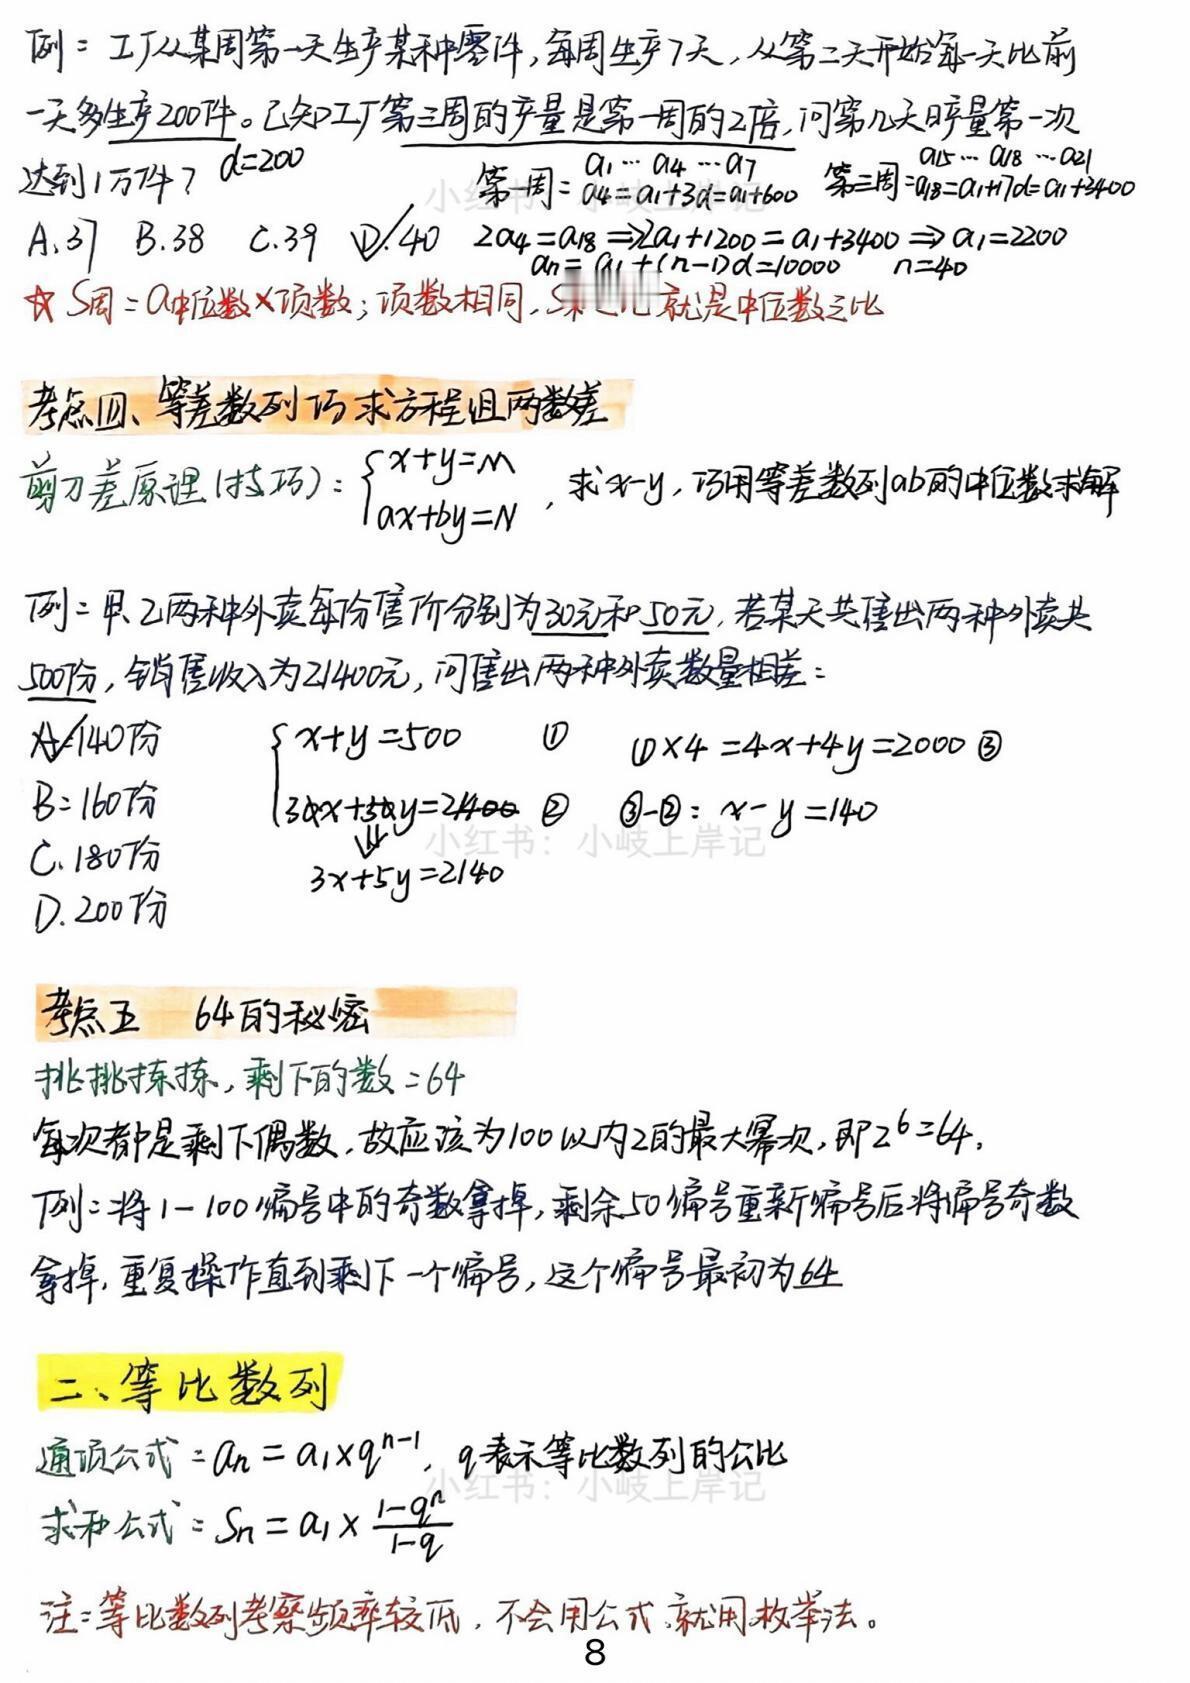 例：工厂从某周第一天生产某种零件，每周生产7天，从第二天开始每一天比前
一天多生产200件。已知工厂第三周的产量是第一周的2倍，问第几天日产量第一次
达到1万件？ d=200 第一周：a1…a4…a7 第三周：a15…a18…a21
a4=a1+3d=a1+600 a18=a1+17d=a1+3400
A.37 B.38 C.39 D.40 2a4=a18⇒2a1+1200=a1+3400⇒a1=2200
an=a1+(n-1)d=10000 n=40
☆S周=a中位数×项数；项数相同，S 之比就是中位数之比
考点四、等差数列巧求方程组两数差
剪刀差原理(技巧)：{x+y=M
ax+by=N ，求x-y，巧用等差数列ab的中位数求解
例：甲、乙两种外卖每份售价分别为30元和50元，若某天共售出两种外卖共
500份，销售收入为21400元，问售出两种外卖数量相差：
A.140份 {x+y=500 ① ①×4=4x+4y=2000③
B.160份 30x+50y=21400 ② ③-②：x-y=140
C.180份 ⇓
3x+5y=2140
D.200份
考点五 64的秘密
挑挑拣拣，剩下的数=64
每次都是剩下偶数，故应该为100以内2的最大幂次，即2⁶=64.
例：将1-100编号中的奇数拿掉，剩余50编号重新编号后将编号奇数
拿掉，重复操作直到剩下一个编号，这个编号最初为64
二、等比数列
通项公式：an=a1×qⁿ⁻¹，q表示等比数列的公比
求和公式：Sn=a1×(1-qⁿ)/(1-q)
注：等比数列考察频率较低，不会用公式，就用枚举法。
8
小红书：小岐上岸记
小红书：小岐上岸记
小红书：小岐上岸记